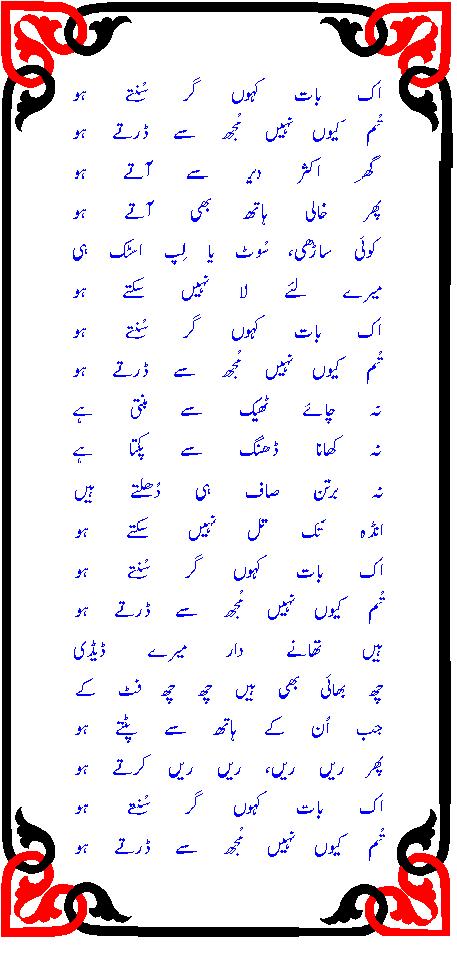 اک بات کہوں گر سُنتے ہو
تُم کیوں نہیں مُجھ سے ڈرتے ہو
گھر اکثر دیر سے آتے ہو
پھر خالی ہاتھ بھی آتے ہو
کوئی ساڑھی، سُوٹ یا لِپ اسٹک ہی
میرے لئے لا نہیں سکتے ہو
اک بات کہوں گر سُنتے ہو
تُم کیوں نہیں مُجھ سے ڈرتے ہو
نہ چائے ٹھیک سے بنتی ہے
نہ کھانا ڈھنگ سے پکتا ہے
نہ برتن صاف ہی دُھلتے ہیں
انڈہ تک تل نہیں سکتے ہو
اک بات کہوں گر سُنتے ہو
تُم کیوں نہیں مُجھ سے ڈرتے ہو
ہیں تھانے دار میرے ڈیڈی
چھ بھائی بھی ہیں چھ چھ فٹ کے
جب اُن کے ہاتھ سے پٹتے ہو
پھر ریں ریں، ریں ریں کرتے ہو
اک بات کہوں گر سُنتے ہو
تُم کیوں نہیں مُجھ سے ڈرتے ہو